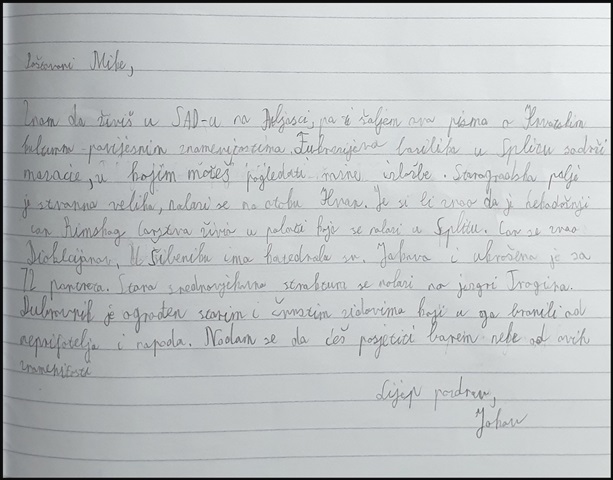 Poštovani Mike,
Znam da živiš u SAD-u na Aljasci, pa ti šaljem ova pisma o Hrvatskim
kulturno-povijesnim znamenjostima. Eufrazijeva basilika u Splizu sadrži
mozacie, u kojim možeš pogledati razne izložbe. Starogradska polje
je stvarna velika, nalazi se na otoku Hvar. Je si li znao da je nekadašnji
car Rimskog Carstva živio u palači koja se nalazi u Splitu. Car se zvao
Dioklecijan. U Šibeniku ima katedrala sv. Jakova i ukrašena je sa
72 Stara srednovjekovna struktura se nalazi na jezgri Trogira.
Dubrovnik je ograđen starim i čvrstim zidovima koji u ga branili od
neprijatelja i napada. Nadam se da ćeš posjetiti barem neke od ovih
znamenitosti
Lijep pozdrav,